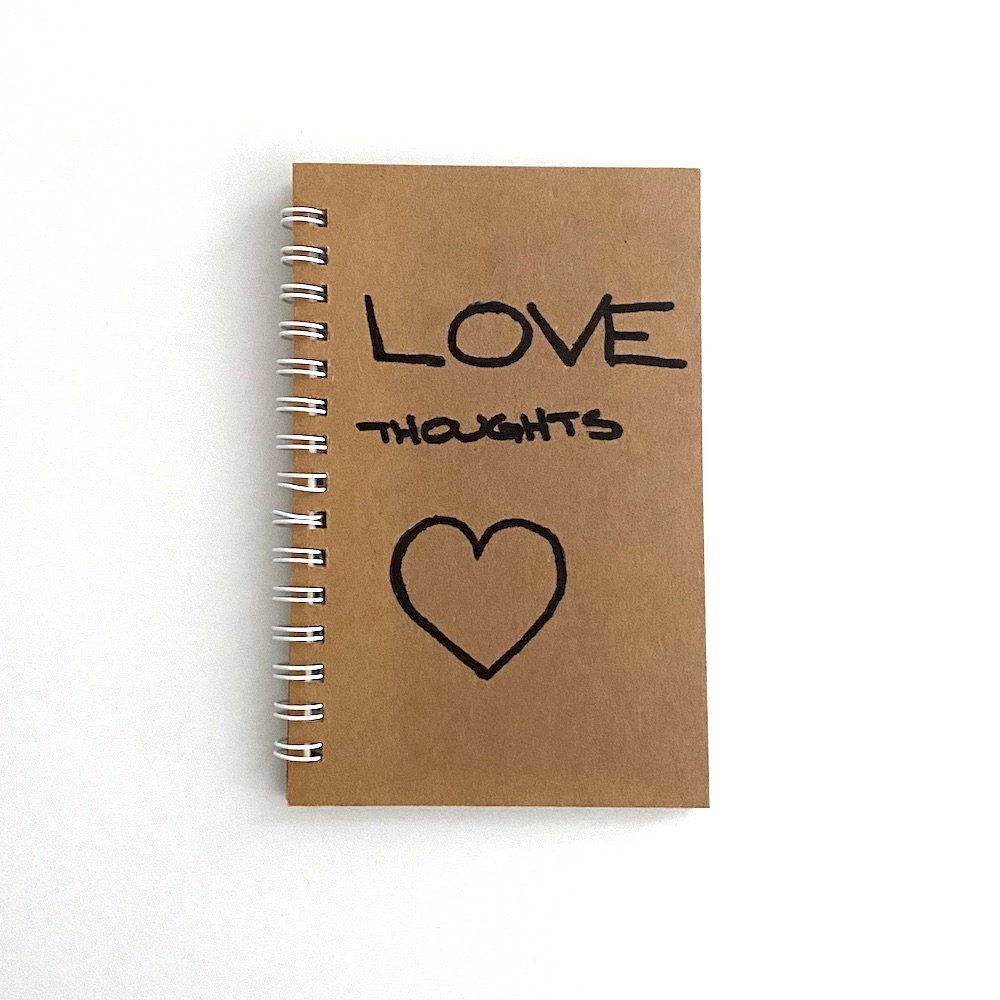 LOVE
THOUGHTS